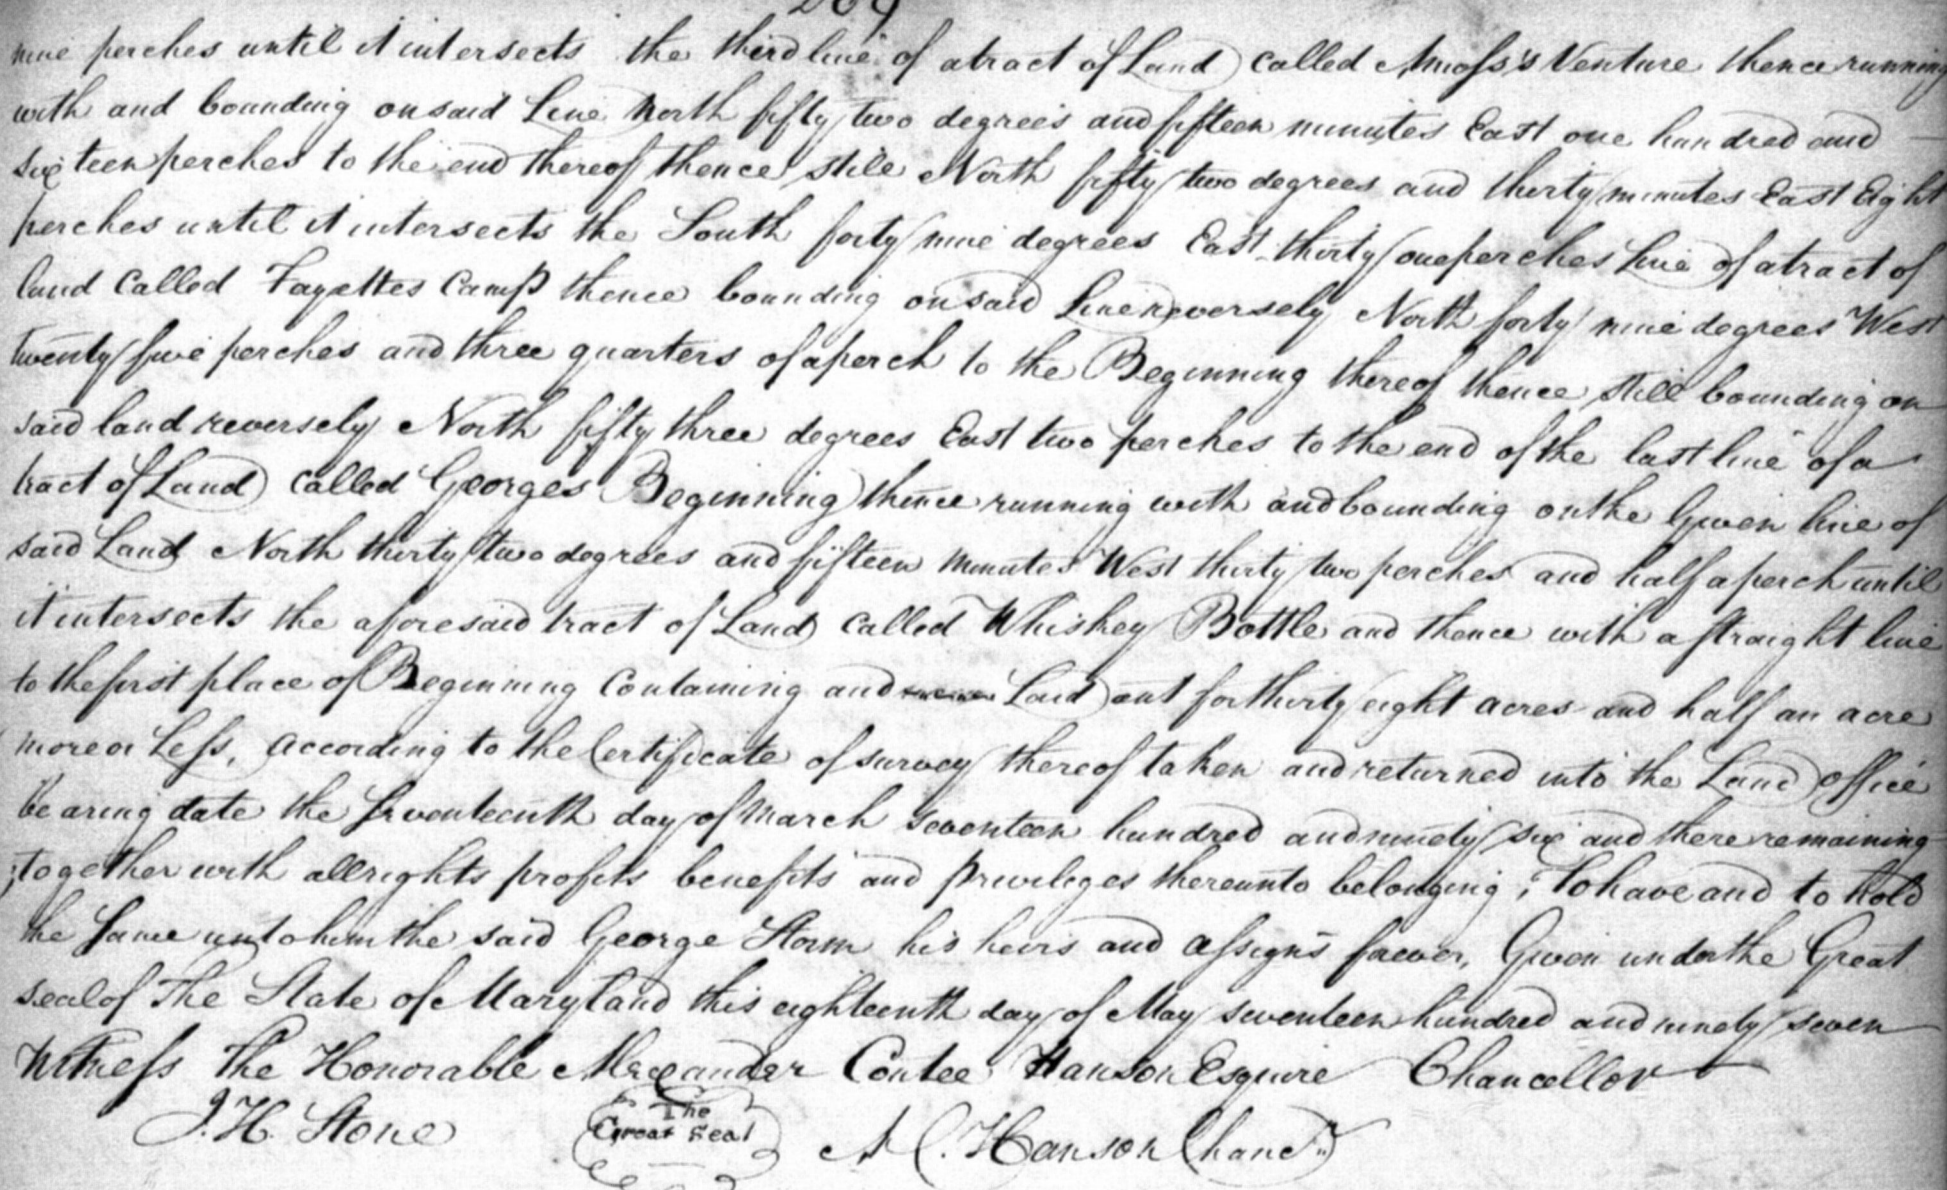 nine perches until it intersects the third line of a tract of Land called Amoss's Venture thence running
with and bounding on said Line North fifty two degrees and fifteen minutes East one hundred and
sixteen perches to the end thereof thence still North fifty two degrees and thirty minutes East Eight
perches until it intersects the South forty nine degrees East thirty one perches Line of a tract of
land called Fayettes Camp thence bounding on said Line reversely North forty nine degrees West
twenty five perches and three quarters of a perch to the Beginning thereof thence still bounding on
said land reversely North fifty three degrees East two perches to the end of the last line of a
tract of Land called Georges Beginning thence running with and bounding on the Given line of
said Land North thirty two degrees and fifteen minutes West thirty two perches and half a perch until
it intersects the aforesaid tract of Land called Whiskey Bottle and thence with a straight line
to the first place of Beginning Containing and Laid out for thirty eight acres and half an acre
more or Less, according to the Certificate of survey thereof taken and returned into the Land office
bearing date the seventeenth day of March seventeen hundred and ninety six and there remaining
together with all rights profits benefits and Privileges thereunto belonging; To have and to hold
the Same unto him the said George Storm his heirs and assigns forever, Given under the Great
seal of The State of Maryland this eighteenth day of May seventeen hundred and ninety seven
Witness The Honorable Alexander Contee Hanson Esquire Chancellor
J. H. Stone The Great Seal A C. Hanson Chanc<sup>r</sup>